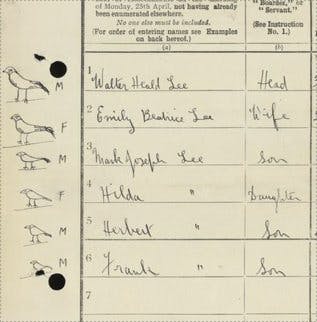 Boarder," or
"Servant."
of Monday, 25th April, not having already
been enumerated elsewhere.
No one else must be included.
(For order of entering names see Examples
on back hereof.)
(See Instruction
No. 1.)
(a) (b)
M 1 Walter Heald Lee Head
F 2 Emily Beatrice Lee Wife
M 3 Mark Joseph Lee Son
F 4 Hilda " Daughter
M 5 Herbert " Son
M 6 Frank " Son
7